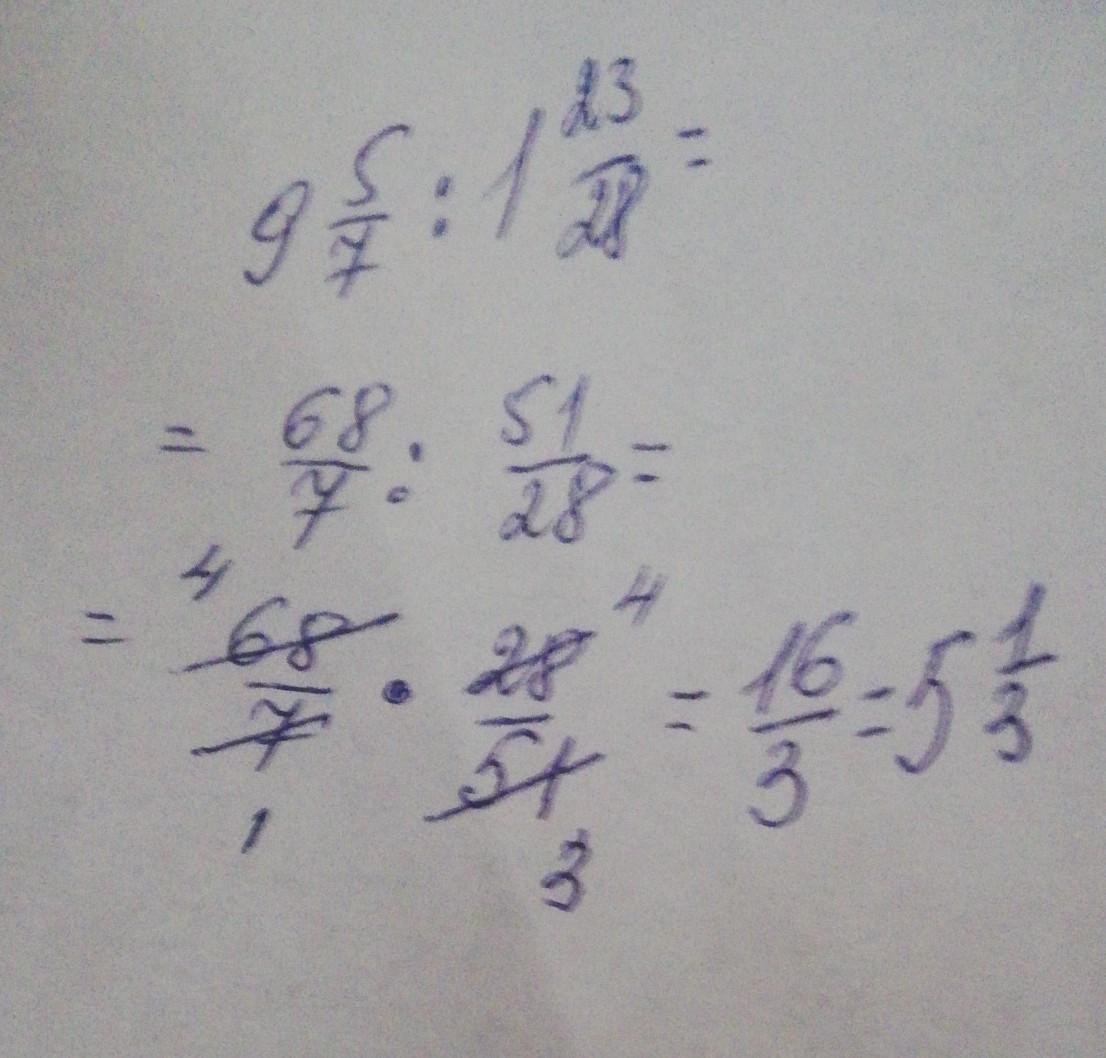 9 5/7 : 1 23/28 =
= 68/7 : 51/28 =
= 4 68/7 1 • 28 4/51 3 = 16/3 = 5 1/3